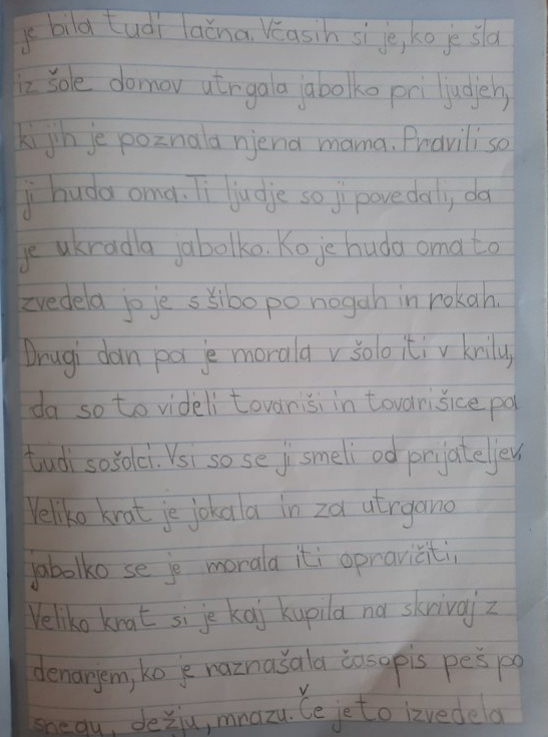 je bila tudi lačna. Včasih si je, ko je šla
iz šole domov utrgala jabolko pri ljudjeh,
ki jih je poznala njena mama. Pravili so
ji huda oma. Ti ljudje so ji povedali, da
je ukradla jabolko. Ko je huda oma to
zvedela jo je s šibo po nogah in rokah.
Drugi dan pa je morala v šolo iti v krilu,
da so to videli tovariši in tovarišice pa
tudi sošolci. Vsi so se ji smeli od prijateljev.
Veliko krat je jokala in za utrgano
jabolko se je morala iti opravičiti.
Veliko krat si je kaj kupila na skrivaj z
denarjem, ko je raznašala časopis peš po
snegu, dežju, mrazu. Če je to izvedela